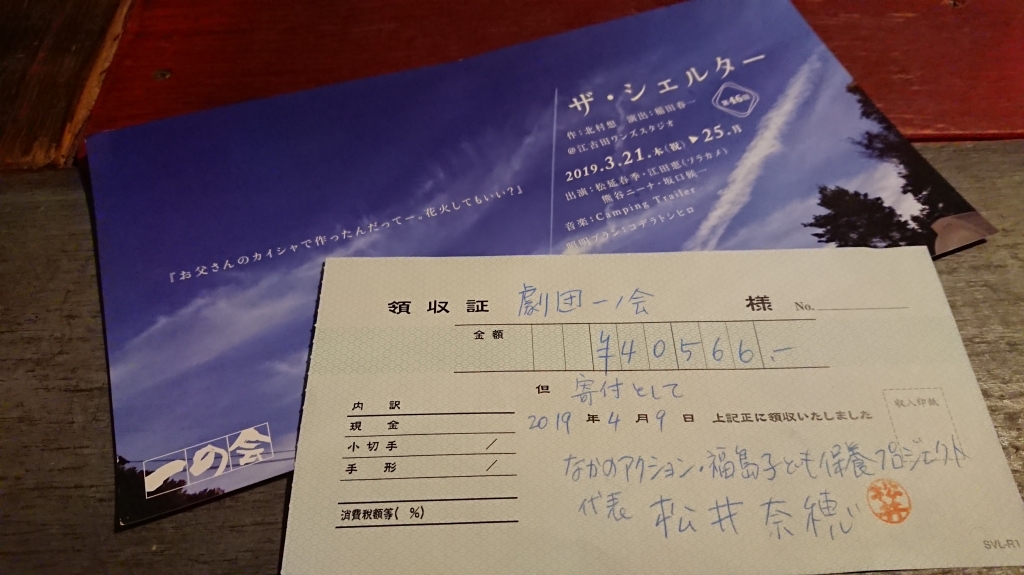 ザ・シェルター
第46回
作:北村想 演出:稲田春一
@江古田ワンズスタジオ
2019.3.21.木(祝)▶25.月
出演:松延春季・江田恵(ワラカメ)
熊谷ニーナ・坂口候一
音楽:Camping Trailer
照明プラン:コデラトシヒロ
『お父さんのカイシャで作ったんだってー。花火してもいい?』
一の会
領収証 劇団一ノ会 様 No.
金額 ¥40566.-
但 寄付として
内訳
2019年4月9日 上記正に領収いたしました
収入印紙
現金
小切手 /
手形 /
消費税額等( %)
なかのアクション・福島子ども保養プロジェクト
代表 松井奈穂
松井
SVL-R1